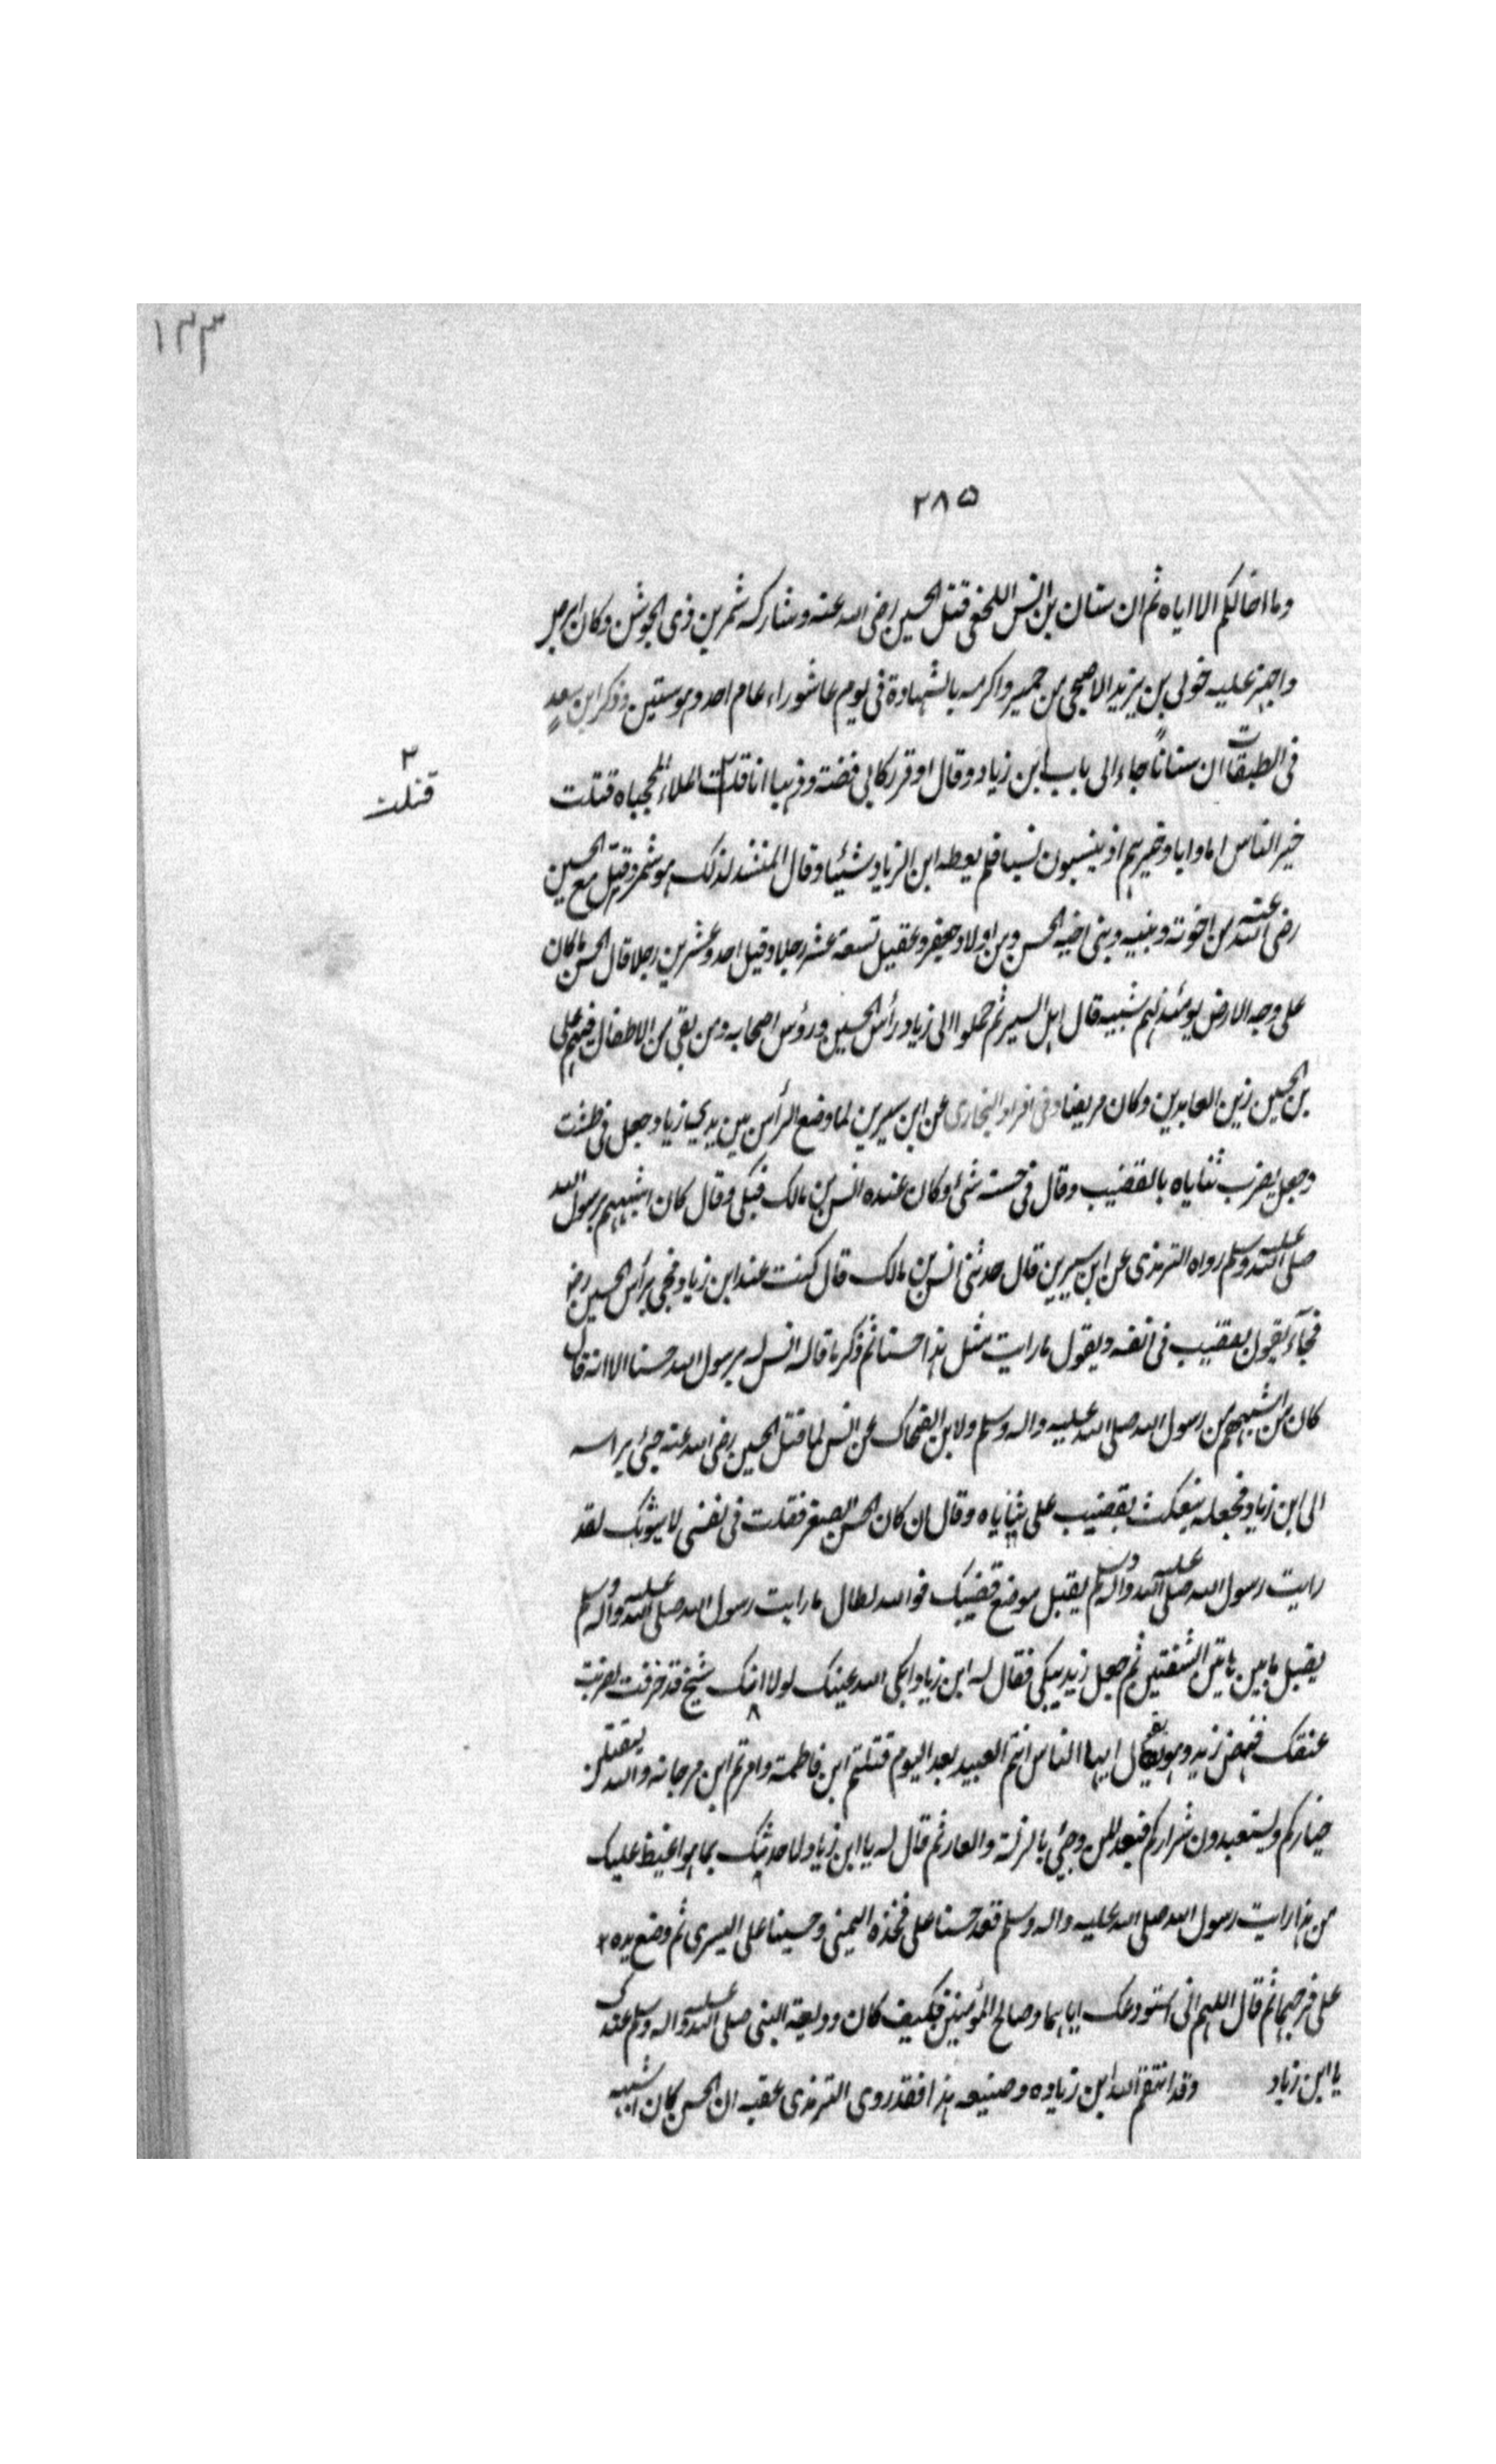 ١٣٣
٢٨٥
وما اخالكم الا اياه ثم ان سنان بن انس النخعى قتل الحسين رضى الله عنه وشاركه شمر بن ذى الجوشن وكان ابرص
واجهز عليه خولى بن يزيد الاصبحى من حمير واكرمه بالشهادة فى يوم عاشوراء عام احد وستين وذكر ابن سعد
فى الطبقات ان سنانا جاء الى باب ابن زياد وقال اوقر ركابى فضة وذهبا انا قتلت الملك المحجبا قتلت
٢
قتلت
خير الناس اما وابا وخيرهم اذ ينسبون نسبا فلم يعطه ابن الزياد شيئا وقال المنشد لذلك هو شمر وقتل مع الحسين
رضى الله عنه من اخوته وبنيه وبنى اخيه الحسن ومن اولاد جعفر وعقيل تسعة عشر رجلا وقيل احد وعشرين رجلا قال الحسن ما كان
على وجه الارض يومئذ لهم شبيه قال اهل السير ثم حملوا الى زياد رأس الحسين ورؤس اصحابه ومن بقى من الاطفال فيهم على
بن الحسين زين العابدين وكان مريضا وفى افراد البخارى عن ابن سيرين لما وضع الرأس بين يدى زياد وجعل فى طشت
وجعل يضرب ثناياه بالقضيب وقال فى حسنه شئ وكان عنده انس بن مالك فبكى وقال كان اشبههم برسول الله
صلى الله عليه وسلم رواه الترمذى عن ابن سيرين قال حدثنى انس بن مالك قال كنت عند ابن زياد فجى برأس الحسين رض
فجآء يقول بقضيب فى انفه ويقول ما رايت مثل هذا حسنا ثم ذكر ما قاله انس له برسول الله حسنا الا انه قال
كان من اشبههم من رسول الله صلى الله عليه واله وسلم ولابن الضحاك عن انس لما قتل الحسين رضى الله عنه جيئ براسه
الى ابن زياد فجعله ينكث بقضيب على ثناياه وقال ان كان لحسن الصغر فقلت فى نفسى لاسوئك لقد
رايت رسول الله صلى الله عليه واله وسلم يقبل موضع قضيبك فوالله لطال ما رايت رسول الله صلى الله عليه واله وسلم
يقبل ما بين هاتين الشفتين ثم جعل زيد يبكى فقال له ابن زياد ابكى الله عينك لولا انك شيخ قد خرفت لضربت
عنقك فنهض زيد وهو يقول ايها الناس انتم العبيد بعد اليوم قتلتم ابن فاطمة وامرتم ابن مرجانه والله ليقتلن
خياركم وليستعبدون شراركم فبعد لمن رضى بالذلة والعار ثم قال له يا ابن زياد لاحدثنك بما هو اغيظ عليك
من هذا رايت رسول الله صلى الله عليه واله وسلم قعد حسنا على فخذه اليمنى وحسينا على اليسرى ثم وضع يده
على فرجيهما ثم قال اللهم انى استودعك اياهما وصالح المؤمنين فكيف كان وديعة النبى صلى الله عليه واله وسلم عندك
يا ابن زياد وقد انتقم الله ابن زياده وصنيعه هذا فقد روى الترمذى عقب ان الحسن كان اشبه